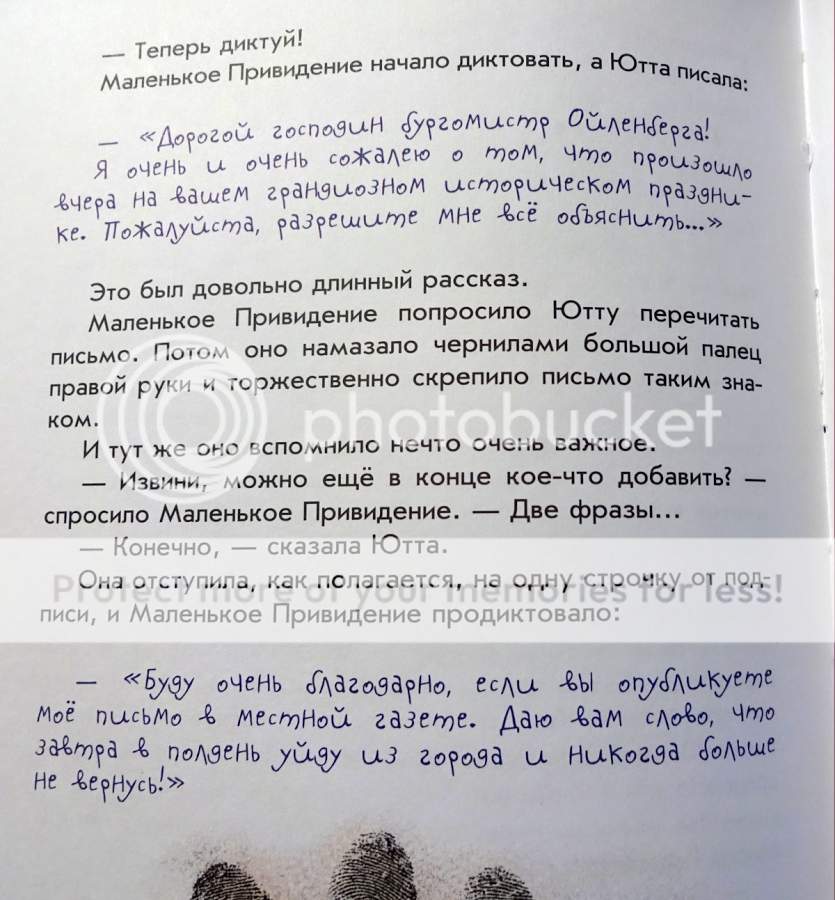 — Теперь диктуй!
Маленькое Привидение начало диктовать, а Ютта писала:
— «Дорогой господин бургомистр Ойленберга!
Я очень и очень сожалею о том, что произошло
вчера на вашем грандиозном историческом праздни-
ке. Пожалуйста, разрешите мне всё объяснить...»
Это был довольно длинный рассказ.
Маленькое Привидение попросило Ютту перечитать
письмо. Потом оно намазало чернилами большой палец
правой руки и торжественно скрепило письмо таким зна-
ком.
photobucket
И тут же оно вспомнило нечто очень важное.
— Извини, можно ещё в конце кое-что добавить? —
спросило Маленькое Привидение. — Две фразы...
— Конечно, — сказала Ютта.
Она отступила, как полагается, на одну строчку от под-
Protect more of your memories for less!
писи, и Маленькое Привидение продиктовало:
— «Буду очень благодарно, если вы опубликуете
моё письмо в местной газете. Даю вам слово, что
завтра в полдень уйду из города и никогда больше
не вернусь!»